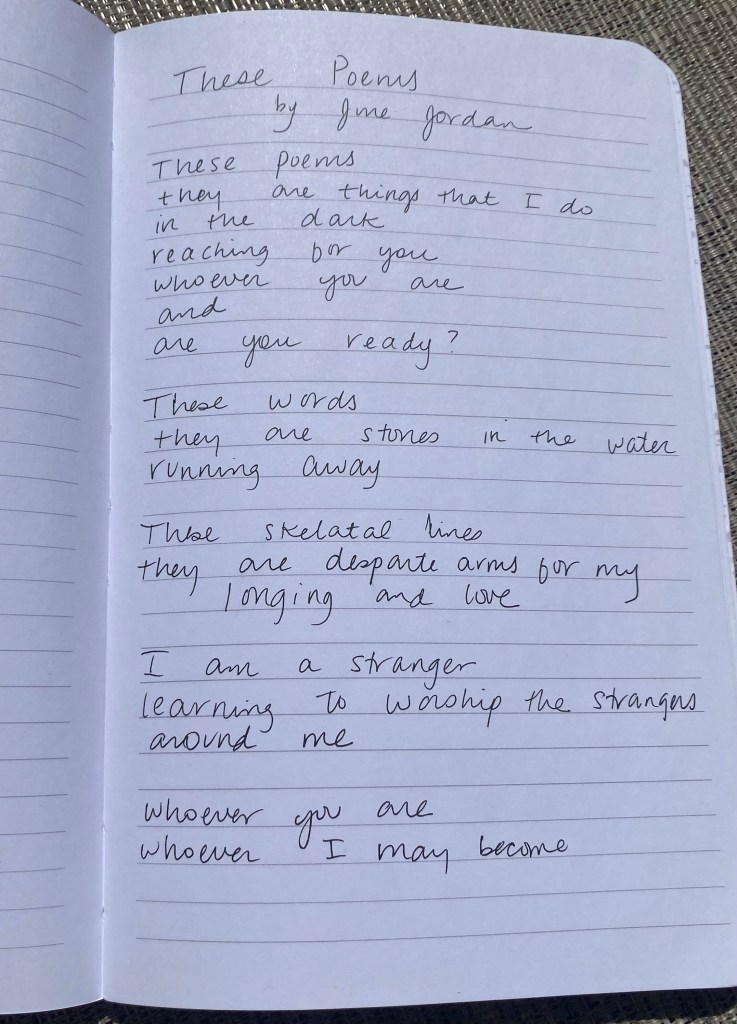 These Poems
by June Jordan
These poems
they are things that I do
in the dark
reaching for you
whoever you are
and
are you ready?
These words
they are stones in the water
running away
These skelatal lines
they are desparte arms for my
longing and love
I am a stranger
learning to worship the strangers
around me
whoever you are
whoever I may become